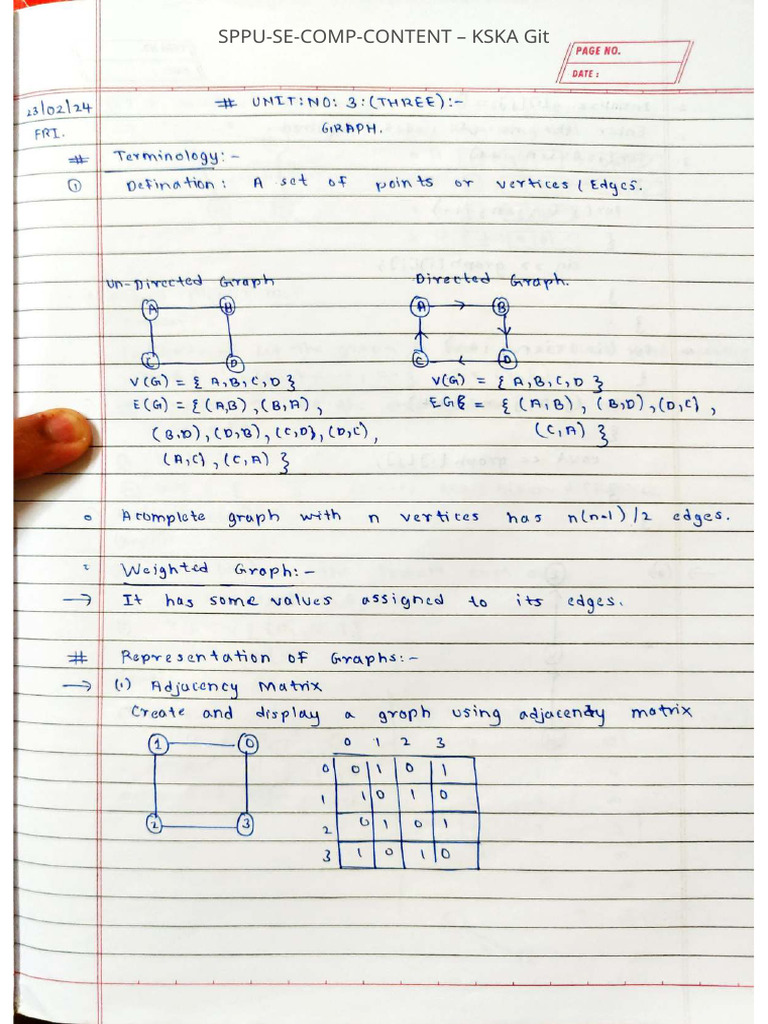 SPPU-SE-COMP-CONTENT – KSKA Git
PAGE NO.
DATE :
23/02/24
FRI.
# UNIT:NO: 3:(THREE):-
GRAPH.
# Terminology:-
① Defination: A set of points or vertices / Edges.
Un-Directed Graph
A B
C D
V(G) = { A,B,C,D }
E(G) = { (A,B) , (B,A) ,
(B,D) , (D,B) , (C,D) , (D,C) ,
(A,C) , (C,A) }
Directed Graph.
A B
C D
V(G) = { A,B,C,D }
EG = { (A,B) , (B,D) , (D,C) ,
(C,A) }
A complete graph with n vertices has n(n-1)/2 edges.
Weighted Graph:-
→ It has some values assigned to its edges.
# Representation of Graphs:-
→ (1) Adjacency Matrix
Create and display a graph using adjacency matrix
1 0
2 3
0 1 2 3
0 0 1 0 1
1 1 0 1 0
2 0 1 0 1
3 1 0 1 0